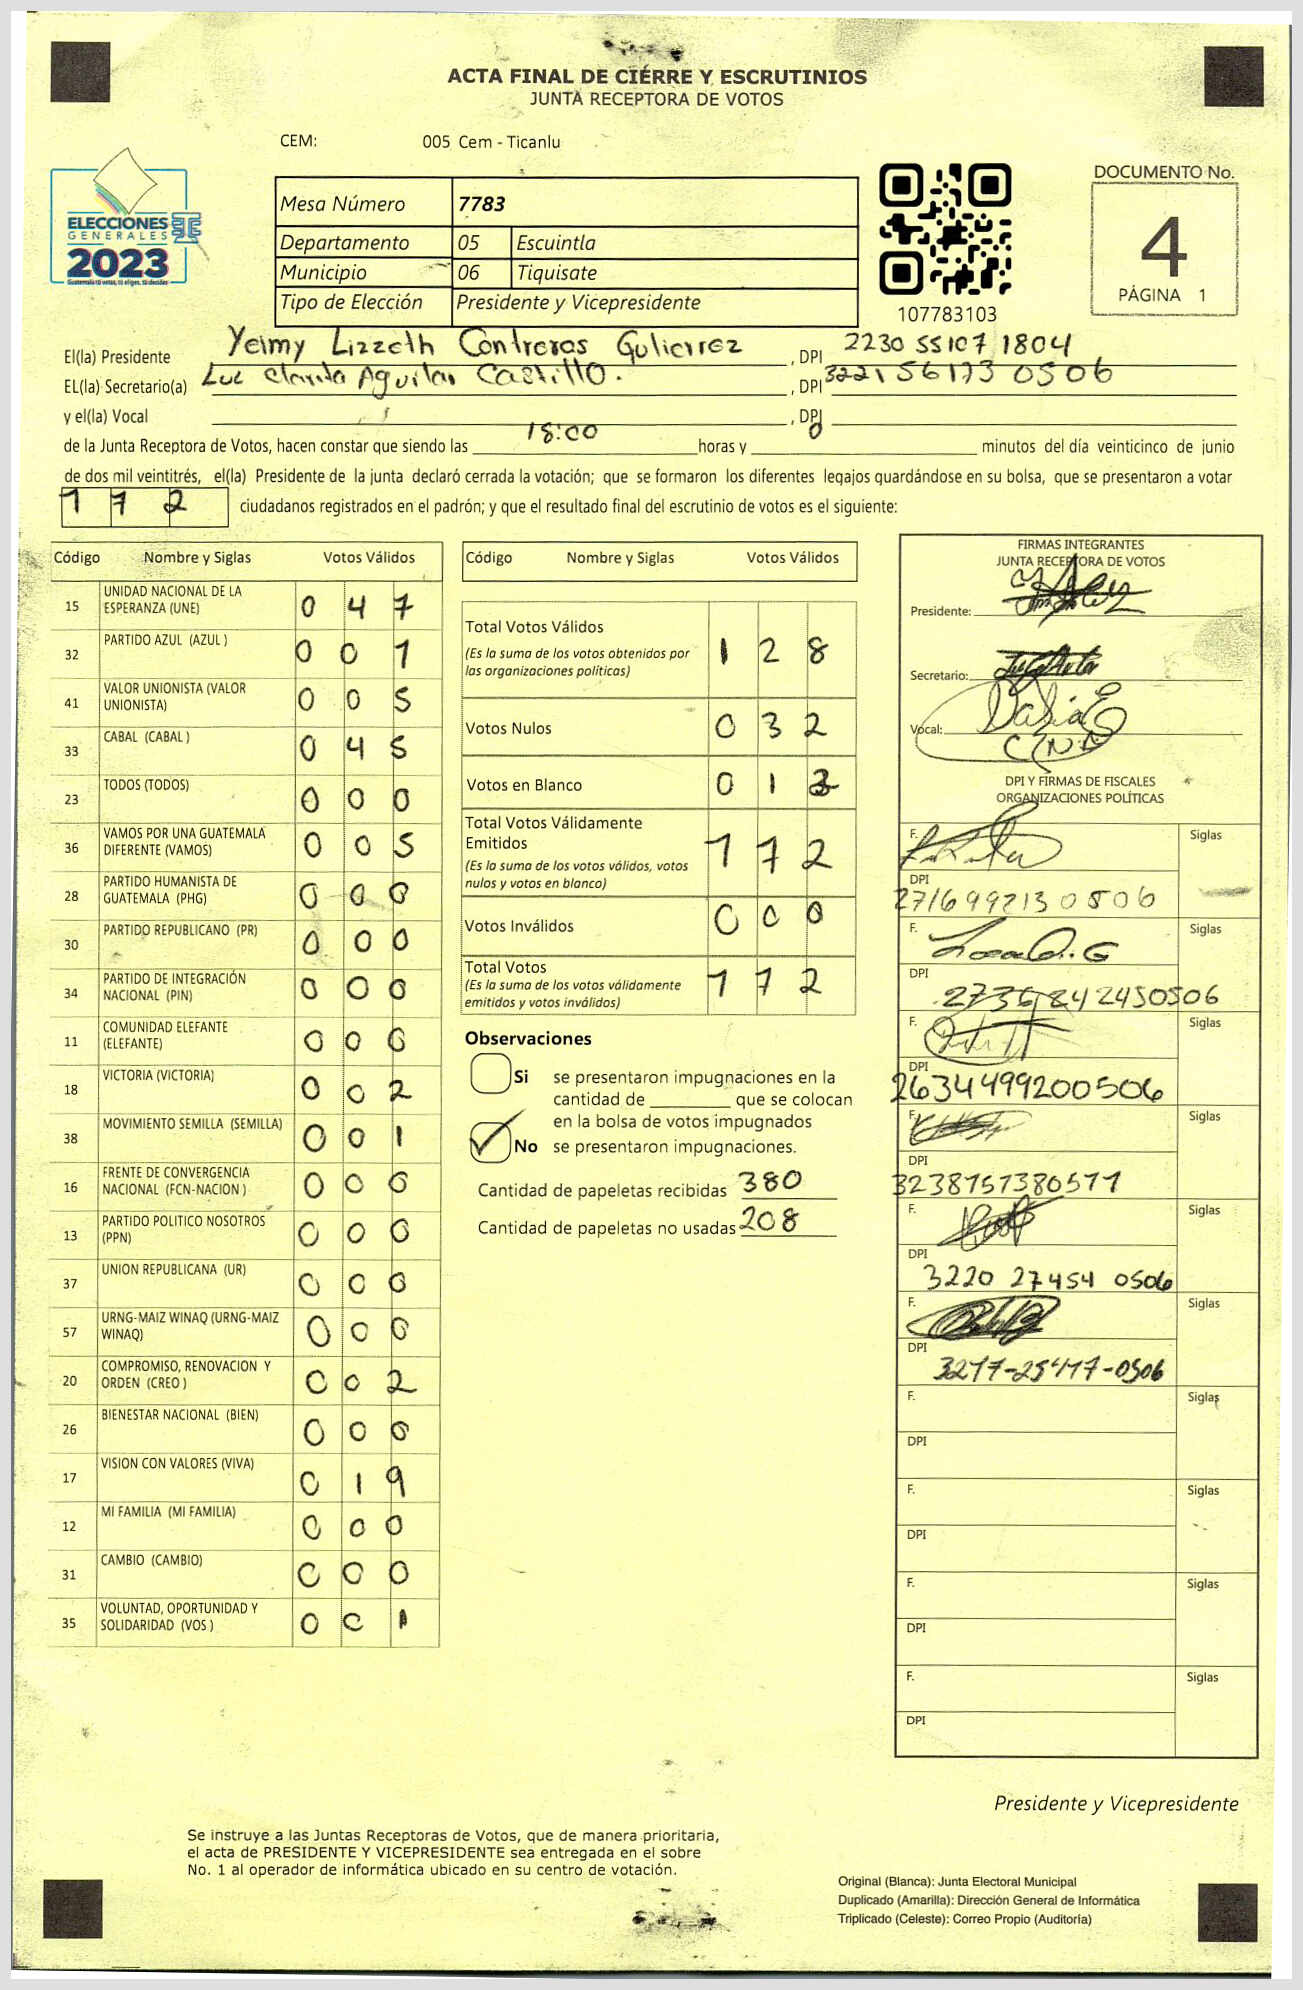 ACTA FINAL DE CIERRE Y ESCRUTINIOS
JUNTA RECEPTORA DE VOTOS
CEM: 005 Cem - Ticanlu
ELECCIONES
GENERALES
2023
Mesa Número 7783
Departamento 05 Escuintla
Municipio 06 Tiquisate
Tipo de Elección Presidente y Vicepresidente
107783103
DOCUMENTO No.
4
PÁGINA 1
El(la) Presidente Yeimy Lizzeth Contreras Gutierrez , DPI 2230 55107 1804
EL(la) Secretario(a) Luc Clarita Aguilar Castillo. , DPI 3221 56173 0506
y el(la) Vocal , DPI
de la Junta Receptora de Votos, hacen constar que siendo las 18:00 horas y 0 minutos del día veinticinco de junio
de dos mil veintitrés, el(la) Presidente de la junta declaró cerrada la votación; que se formaron los diferentes legajos guardándose en su bolsa, que se presentaron a votar
172 ciudadanos registrados en el padrón; y que el resultado final del escrutinio de votos es el siguiente:
Código Nombre y Siglas Votos Válidos
15 UNIDAD NACIONAL DE LA ESPERANZA (UNE) 0 4 7
32 PARTIDO AZUL (AZUL ) 0 0 1
41 VALOR UNIONISTA (VALOR UNIONISTA) 0 0 5
33 CABAL (CABAL ) 0 4 5
23 TODOS (TODOS) 0 0 0
36 VAMOS POR UNA GUATEMALA DIFERENTE (VAMOS) 0 0 5
28 PARTIDO HUMANISTA DE GUATEMALA (PHG) 0 0 0
30 PARTIDO REPUBLICANO (PR) 0 0 0
34 PARTIDO DE INTEGRACIÓN NACIONAL (PIN) 0 0 0
11 COMUNIDAD ELEFANTE (ELEFANTE) 0 0 0
18 VICTORIA (VICTORIA) 0 0 2
38 MOVIMIENTO SEMILLA (SEMILLA) 0 0 1
16 FRENTE DE CONVERGENCIA NACIONAL (FCN-NACION ) 0 0 0
13 PARTIDO POLITICO NOSOTROS (PPN) 0 0 0
37 UNION REPUBLICANA (UR) 0 0 0
57 URNG-MAIZ WINAQ (URNG-MAIZ WINAQ) 0 0 0
20 COMPROMISO, RENOVACION Y ORDEN (CREO ) 0 0 2
26 BIENESTAR NACIONAL (BIEN) 0 0 0
17 VISION CON VALORES (VIVA) 0 1 9
12 MI FAMILIA (MI FAMILIA) 0 0 0
31 CAMBIO (CAMBIO) 0 0 0
35 VOLUNTAD, OPORTUNIDAD Y SOLIDARIDAD (VOS ) 0 0 1
Código Nombre y Siglas Votos Válidos
Total Votos Válidos 1 2 8
(Es la suma de los votos obtenidos por
las organizaciones políticas)
Votos Nulos 0 3 2
Votos en Blanco 0 1 2
Total Votos Válidamente
Emitidos 1 7 2
(Es la suma de los votos válidos, votos
nulos y votos en blanco)
Votos Inválidos 0 0 0
Total Votos 1 7 2
(Es la suma de los votos válidamente
emitidos y votos inválidos)
Observaciones
Si se presentaron impugnaciones en la
cantidad de ________ que se colocan
en la bolsa de votos impugnados
No se presentaron impugnaciones.
Cantidad de papeletas recibidas 380
Cantidad de papeletas no usadas 208
FIRMAS INTEGRANTES
JUNTA RECEPTORA DE VOTOS
Presidente:
Secretario:
Vocal:
DPI Y FIRMAS DE FISCALES
ORGANIZACIONES POLÍTICAS
F. Siglas
DPI
2716992130506
F. Siglas
DPI
2736842450506
F. Siglas
DPI
2634499200506
F. Siglas
DPI
3238757380511
F. Siglas
DPI
3220 27454 0506
F. Siglas
DPI
3277-25417-0506
F. Siglas
DPI
F. Siglas
DPI
F. Siglas
DPI
F. Siglas
DPI
Presidente y Vicepresidente
Se instruye a las Juntas Receptoras de Votos, que de manera prioritaria,
el acta de PRESIDENTE Y VICEPRESIDENTE sea entregada en el sobre
No. 1 al operador de informática ubicado en su centro de votación.
Original (Blanca): Junta Electoral Municipal
Duplicado (Amarilla): Dirección General de Informática
Triplicado (Celeste): Correo Propio (Auditoría)